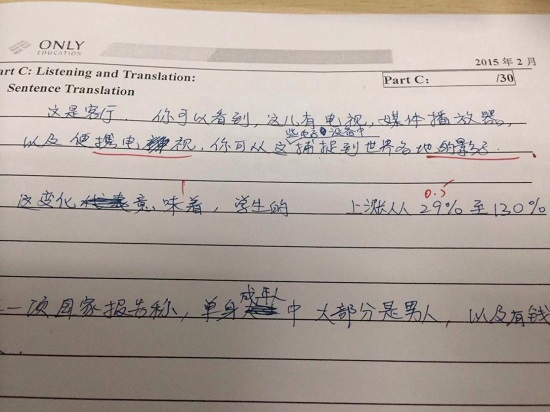 ONLY
EDUCATION
2015年2月
art C: Listening and Translation:
Part C: /30
Sentence Translation
这是客厅. 你可以看到,这儿有电视,媒体播放器,
些电子设备中
以及便携电视,你可以从这捕捉到世界各地的影子.
0.5
这变化意味着,学生的 上涨从 29% 至 130%
成年人
一项国家报告称,单身中大部分是男人,以及有钱